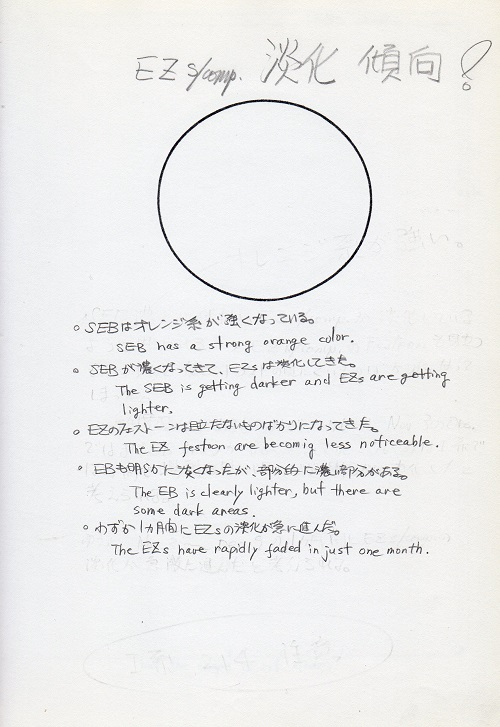 EZ s/comp. 淡化 傾向!
○ SEBはオレンジ系が強くなっている。
SEB has a strong orange color.
○ SEBが濃くなってきて、EZsは淡化してきた。
The SEB is getting darker and EZs are getting
lighter.
○ EZのフェストーンは目立たないものばかりになってきた。
The EZ festoon are becomig less noticeable.
○ EBも明らかに淡くなったが、部分的に濃い部分がある。
The EB is clearly lighter, but there are
some dark areas.
○ わずか1カ月間にEZsの淡化が急に進んだ。
The EZs have rapidly faded in just one month.